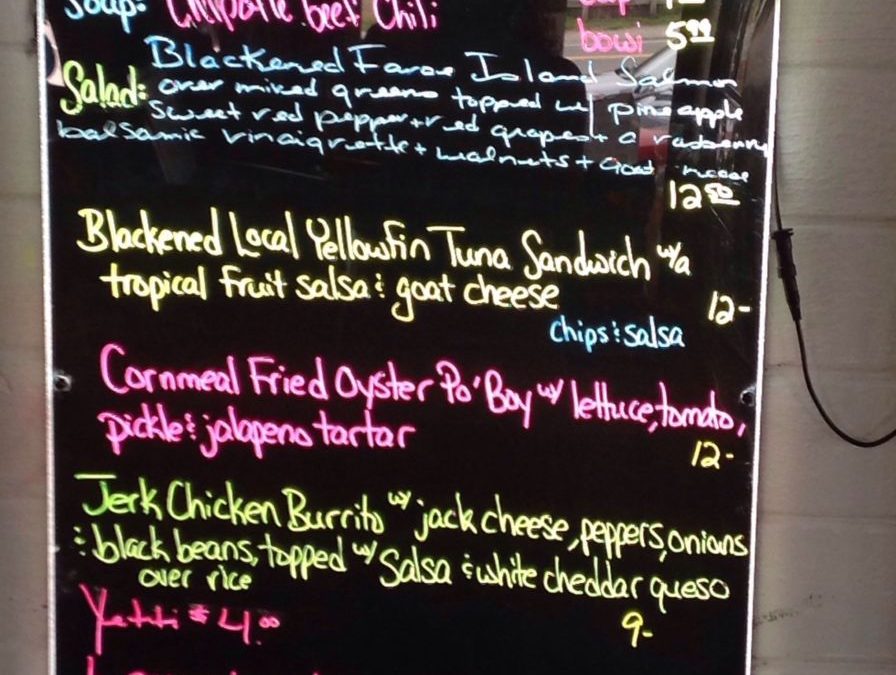 Soup: Chipotle beef Chili
cup
bowl 5.99
Blackened Faroe Island Salmon
Salad: over mixed greens topped w/ pineapple
sweet red pepper + red grapes + a rasberry
balsamic vinaigrette + walnuts + Goat
12.50
Blackened Local Yellowfin Tuna Sandwich w/a
tropical fruit salsa & goat cheese
12-
chips & salsa
Cornmeal Fried Oyster Po'Boy w/ lettuce, tomato,
pickle & jalapeno tartar
12-
Jerk Chicken Burrito w/ jack cheese, peppers, onions
& black beans, topped w/ Salsa & white cheddar queso
over rice
9-
4.00